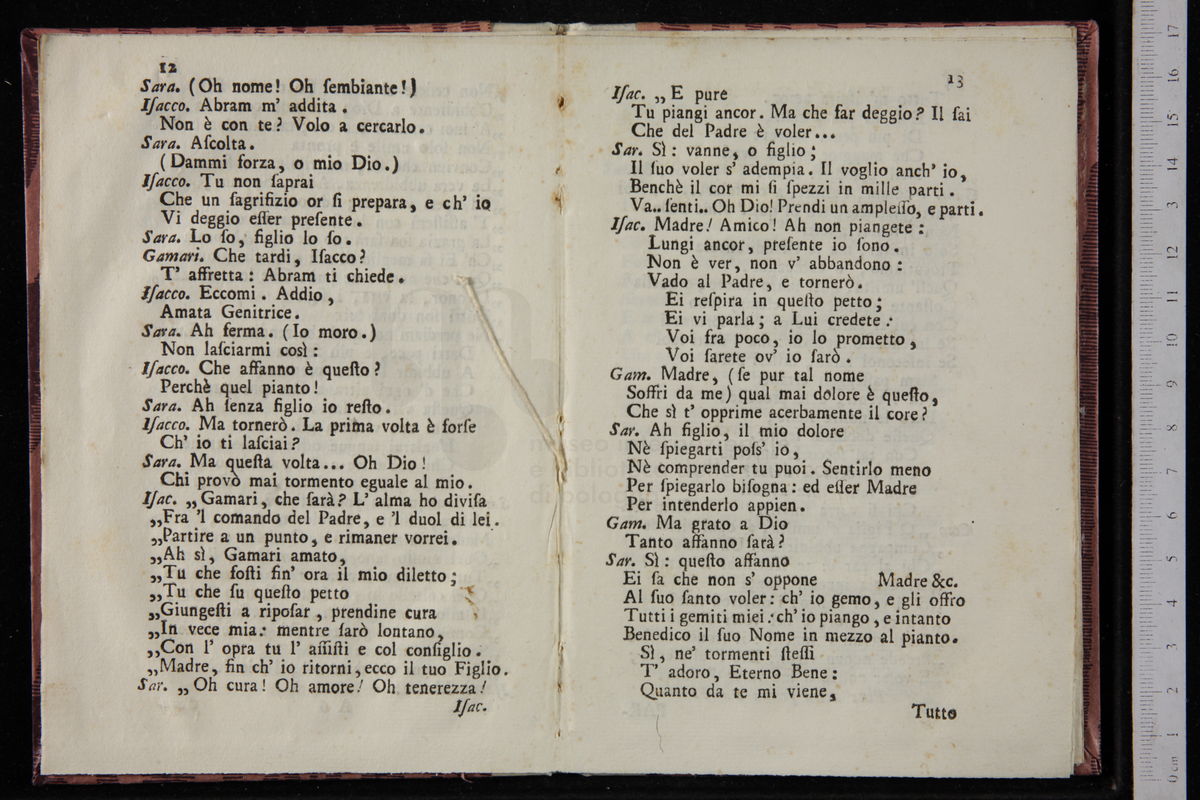 12
Sara. (Oh nome! Oh ſembiante!)
Iſacco. Abram m' addita.
Non è con te? Volo a cercarlo.
Sara. Aſcolta.
(Dammi forza, o mio Dio.)
Iſacco. Tu non ſaprai
Che un ſagrifizio or ſi prepara, e ch' io
Vi deggio eſſer preſente.
Sara. Lo ſo, figlio lo ſo.
Gamari. Che tardi, Iſacco?
T' affretta: Abram ti chiede.
Iſacco. Eccomi. Addio,
Amata Genitrice.
Sara. Ah ferma. (Io moro.)
Non laſciarmi così:
Iſacco. Che affanno è queſto?
Perchè quel pianto!
Sara. Ah ſenza figlio io reſto.
Iſacco. Ma tornerò. La prima volta è forſe
Ch' io ti laſciai?
Sara. Ma queſta volta... Oh Dio!
Chi provò mai tormento eguale al mio.
Iſac. „Gamari, che ſarà? L' alma ho diviſa
„Fra 'l comando del Padre, e 'l duol di lei.
„Partire a un punto, e rimaner vorrei.
„Ah sì, Gamari amato,
„Tu che foſti fin' ora il mio diletto;
„Tu che ſu queſto petto
„Giungeſti a ripoſar, prendine cura
„In vece mia: mentre ſarò lontano,
„Con l' opra tu l' aſſiſti e col conſiglio.
„Madre, fin ch' io ritorni, ecco il tuo Figlio.
Sar. „Oh cura! Oh amore! Oh tenerezza!
Iſac.
13
Iſac. „E pure
Tu piangi ancor. Ma che far deggio? Il ſai
Che del Padre è voler...
Sar. Sì: vanne, o figlio;
Il ſuo voler s' adempia. Il voglio anch' io,
Benchè il cor mi ſi ſpezzi in mille parti.
Va.. ſenti.. Oh Dio! Prendi un ampleſſo, e parti.
Iſac. Madre! Amico! Ah non piangete:
Lungi ancor, preſente io ſono.
Non è ver, non v' abbandono:
Vado al Padre, e tornerò.
Ei reſpira in queſto petto;
Ei vi parla; a Lui credete:
Voi fra poco, io lo prometto,
Voi ſarete ov' io ſarò.
Gam. Madre, (ſe pur tal nome
Soffri da me) qual mai dolore è queſto,
Che sì t' opprime acerbamente il core?
Sar. Ah figlio, il mio dolore
Nè ſpiegarti poſs' io,
Nè comprender tu puoi. Sentirlo meno
Per ſpiegarlo biſogna: ed eſſer Madre
Per intenderlo appien.
Gam. Ma grato a Dio
Tanto affanno ſarà?
Sar. Sì: queſto affanno
Ei ſa che non s' oppone Madre &c.
Al ſuo ſanto voler: ch' io gemo, e gli offro
Tutti i gemiti miei: ch' io piango, e intanto
Benedico il ſuo Nome in mezzo al pianto.
Sì, ne' tormenti ſteſſi
T' adoro, Eterno Bene:
Quanto da te mi viene,
Tutto
museo
e biblio
di bolog
0 cm 1 2 3 4 5 6 7 8 9 10 11 12 13 14 15 16 17